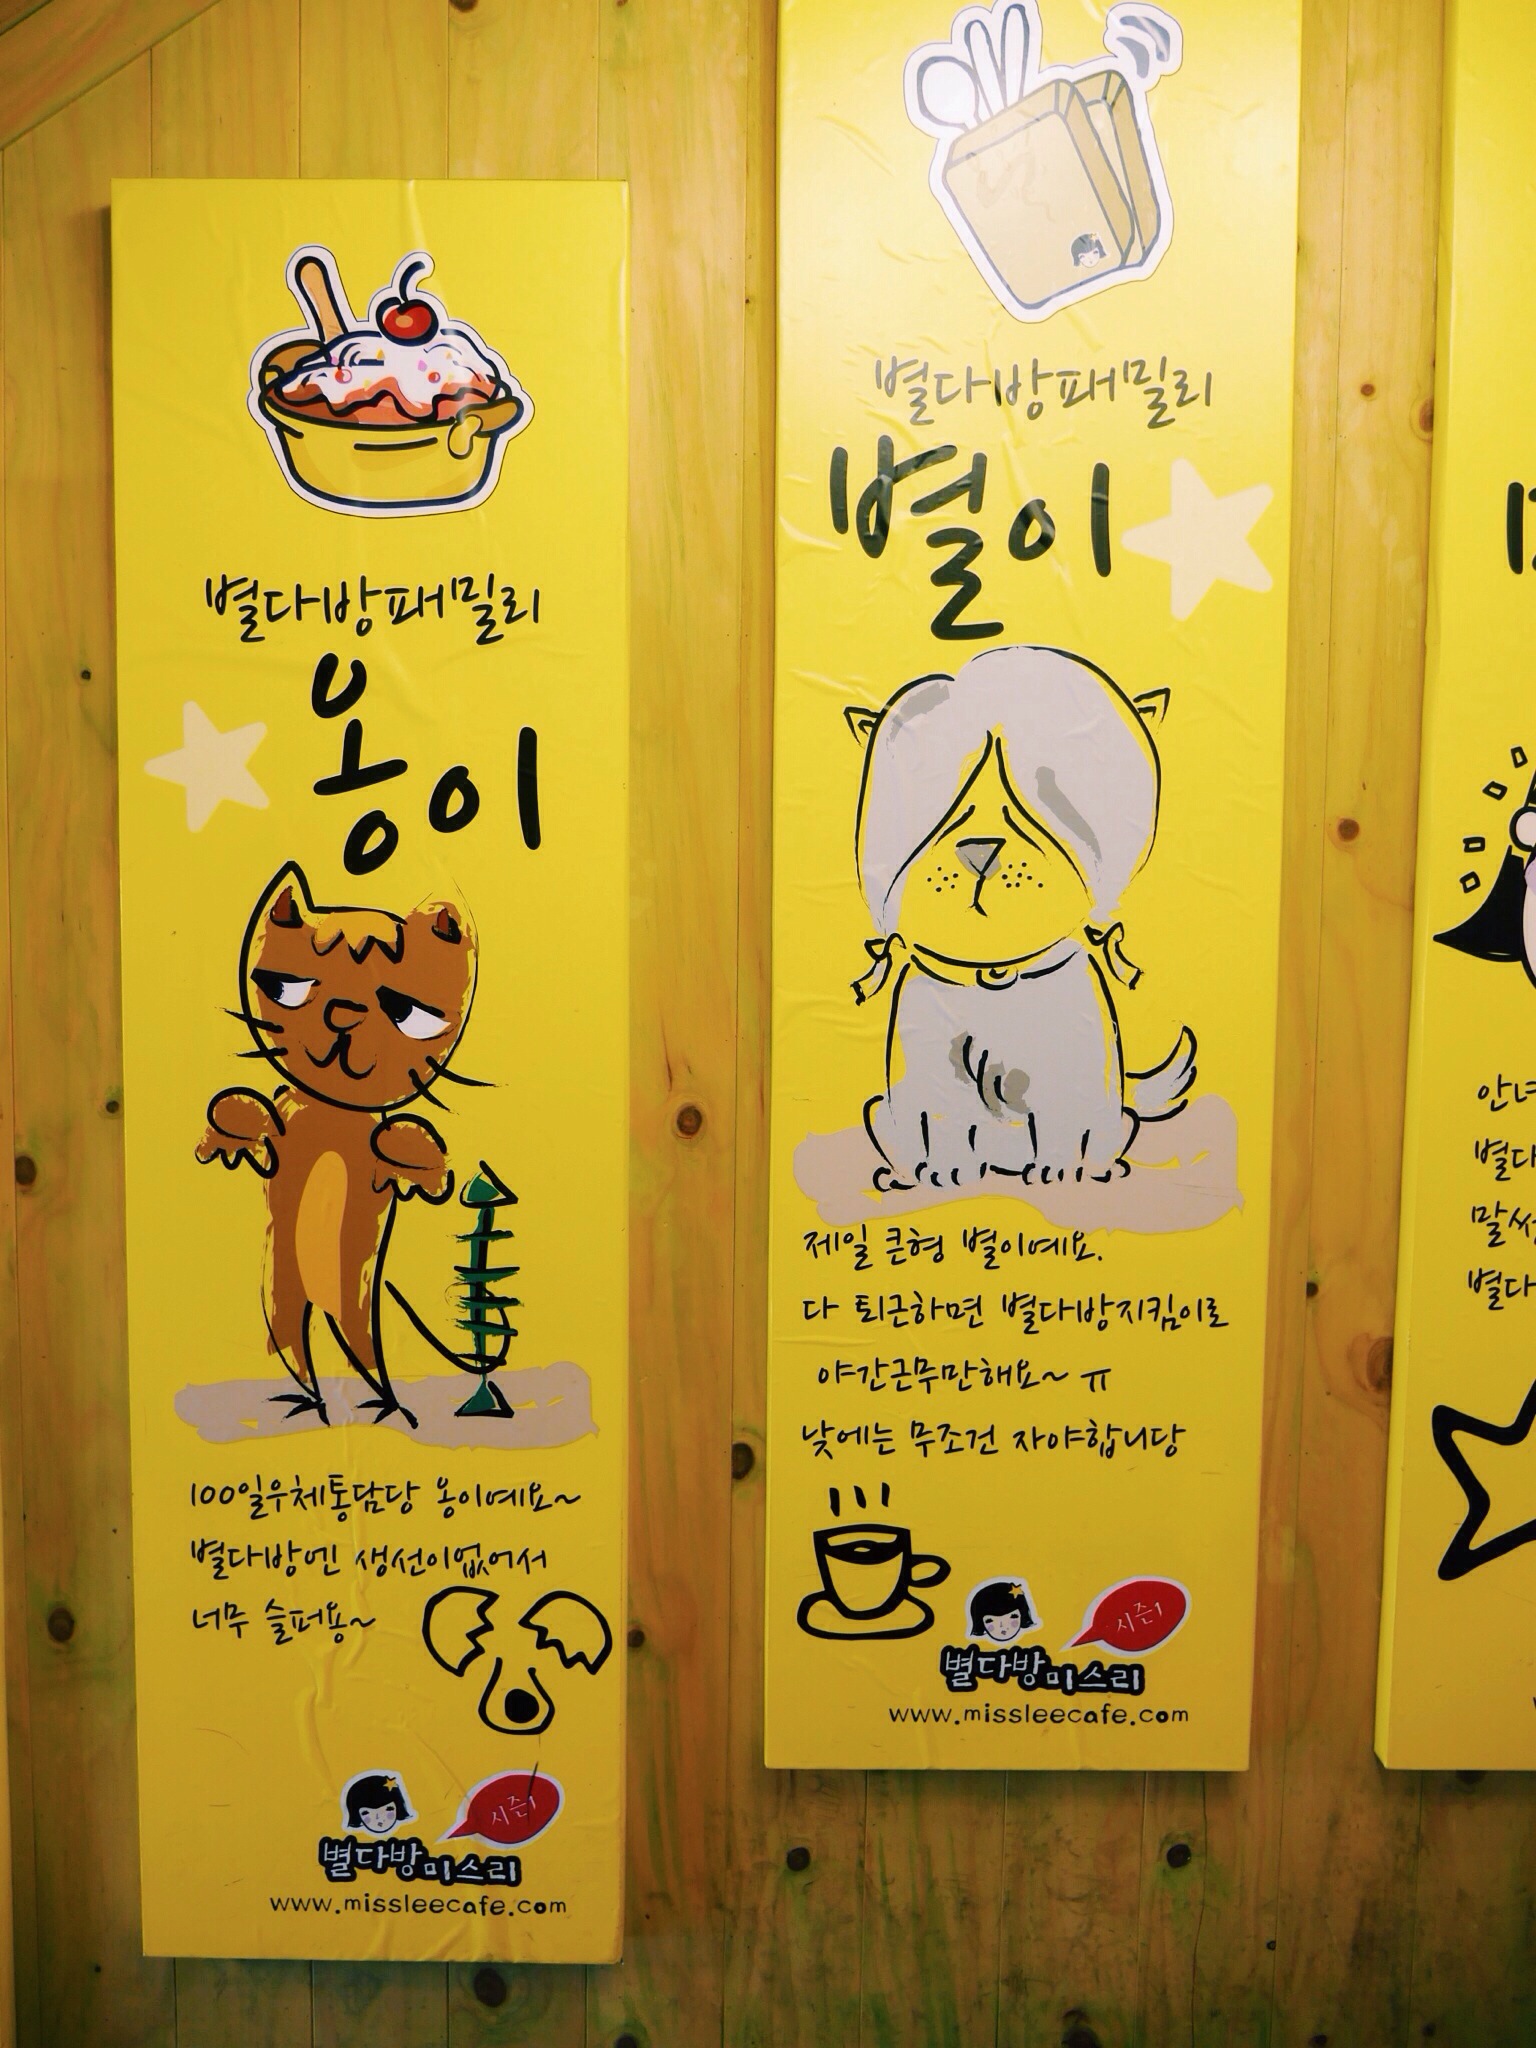 별다방패밀리
옹이
100일우체통담당 옹이예요~
별다방엔 생선이없어서
너무 슬퍼용~
시즌1
별다방미스리
www.missleecafe.com
별다방패밀리
별이
제일 큰형 별이예요.
다 퇴근하면 별다방지킴이로
야간근무만해요~ ㅠ
낮에는 무조건 자야합니당
시즌1
별다방미스리
www.missleecafe.com
별다
말씀
별다